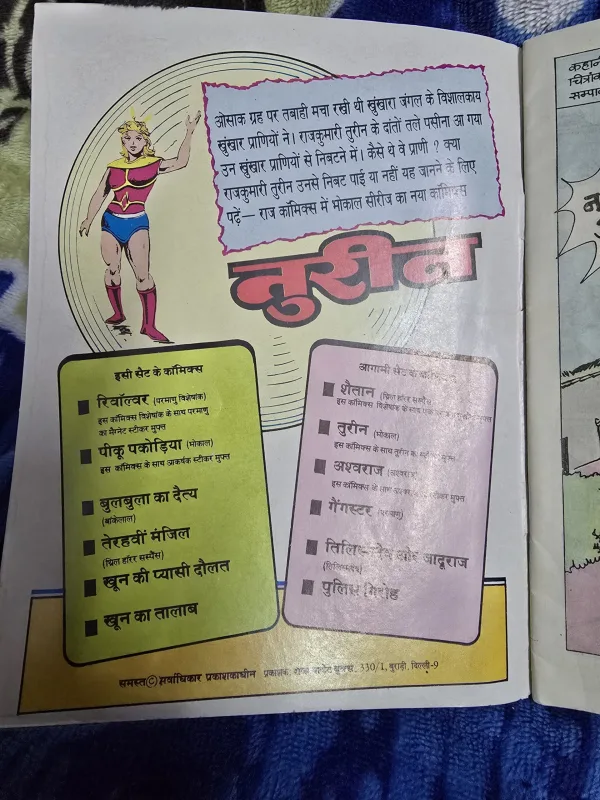 ओसाक ग्रह पर तबाही मचा रखी थी खुंखारा जंगल के विशालकाय
खुंखार प्राणियों ने। राजकुमारी तुरीन के दांतों तले पसीना आ गया
उन खुंखार प्राणियों से निबटने में। कैसे थे वे प्राणी ? क्या
राजकुमारी तुरीन उनसे निबट पाई या नहीं यह जानने के लिए
पढ़ें— राज कॉमिक्स में भोकाल सीरीज का नया कॉमिक्स
तुरीन
इसी सैट के कॉमिक्स
रिवॉल्वर (परमाणु विशेषांक)
इस कॉमिक्स विशेषांक के साथ परमाणु
का मैग्नेट स्टीकर मुफ्त
पीकू पकोड़िया (भोकाल)
इस कॉमिक्स के साथ आकर्षक स्टीकर मुफ्त
बुलबुला का दैत्य
(बांकेलाल)
तेरहवीं मंजिल
(थ्रिल हॉरर सस्पैंस)
खून की प्यासी दौलत
खून का तालाब
आगामी सैट के
शैतान (थ्रिल हॉरर सस्पैंस)
इस कॉमिक्स विशेषांक के साथ मुफ्त
तुरीन (भोकाल)
इस कॉमिक्स के साथ तुरीन का मुफ्त
अश्वराज (अश्वराज)
इस कॉमिक्स के साथ मुफ्त
गैंगस्टर
और जादूराज
पुलिस गिरोह
समस्त © सर्वाधिकार प्रकाशकाधीन प्रकाशक: राजा पॉकेट बुक्स, 330/1, बुराड़ी, दिल्ली-9
कहान
चित्रांक
सम्पा